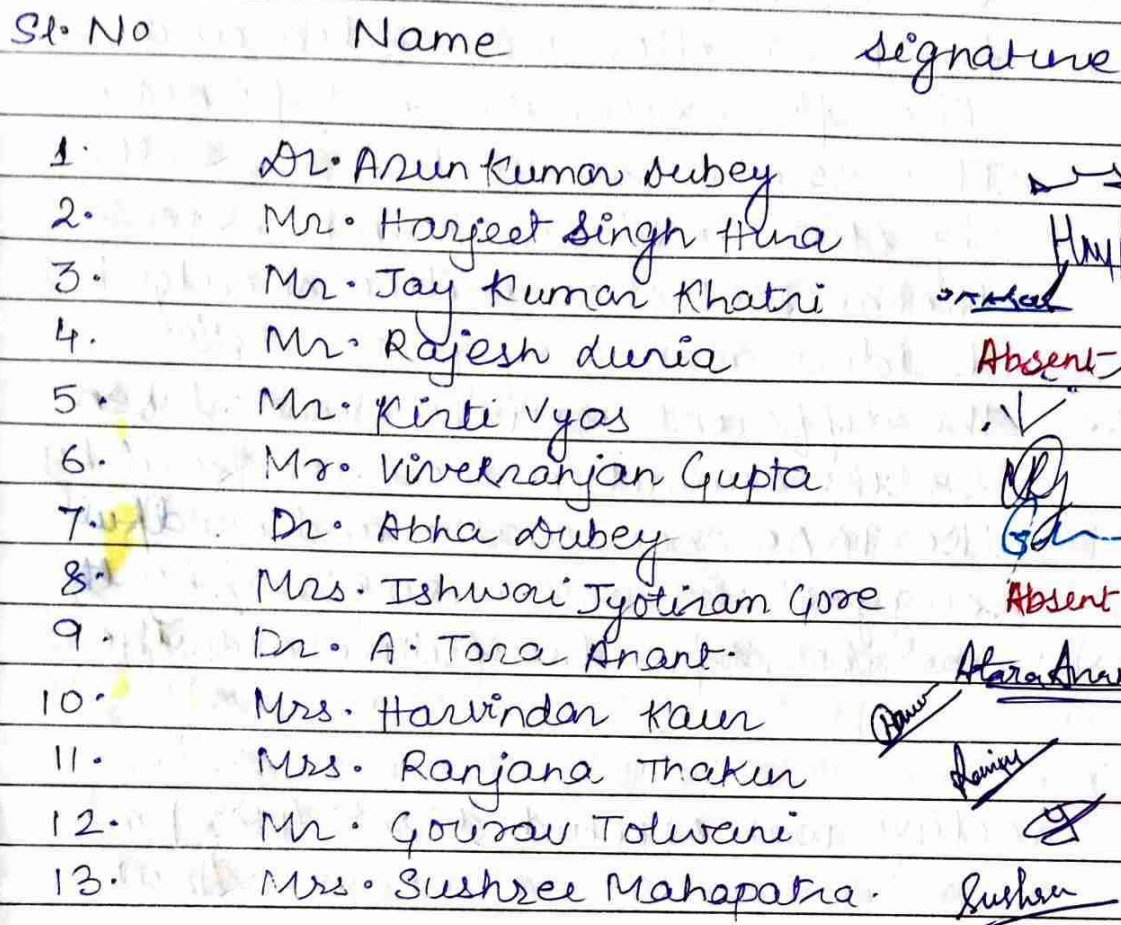 Sl. No Name Signature
1. Dr. Arun Kumar Dubey
2. Mr. Harjeet Singh Hura
3. Mr. Jay Kumar Khatri
4. Mr. Rajesh Lunia Absent
5. Mr. Kirti Vyas
6. Mr. Vivekranjan Gupta
7. Dr. Abha Dubey
8. Mrs. Ishwari Jyotiram Gore Absent
9. Dr. A. Tara Anant. Atara Anan
10. Mrs. Harvindar Kaur
11. Mrs. Ranjana Thakur
12. Mr. Gourav Tolwani
13. Mrs. Sushree Mahapatra. Sushree